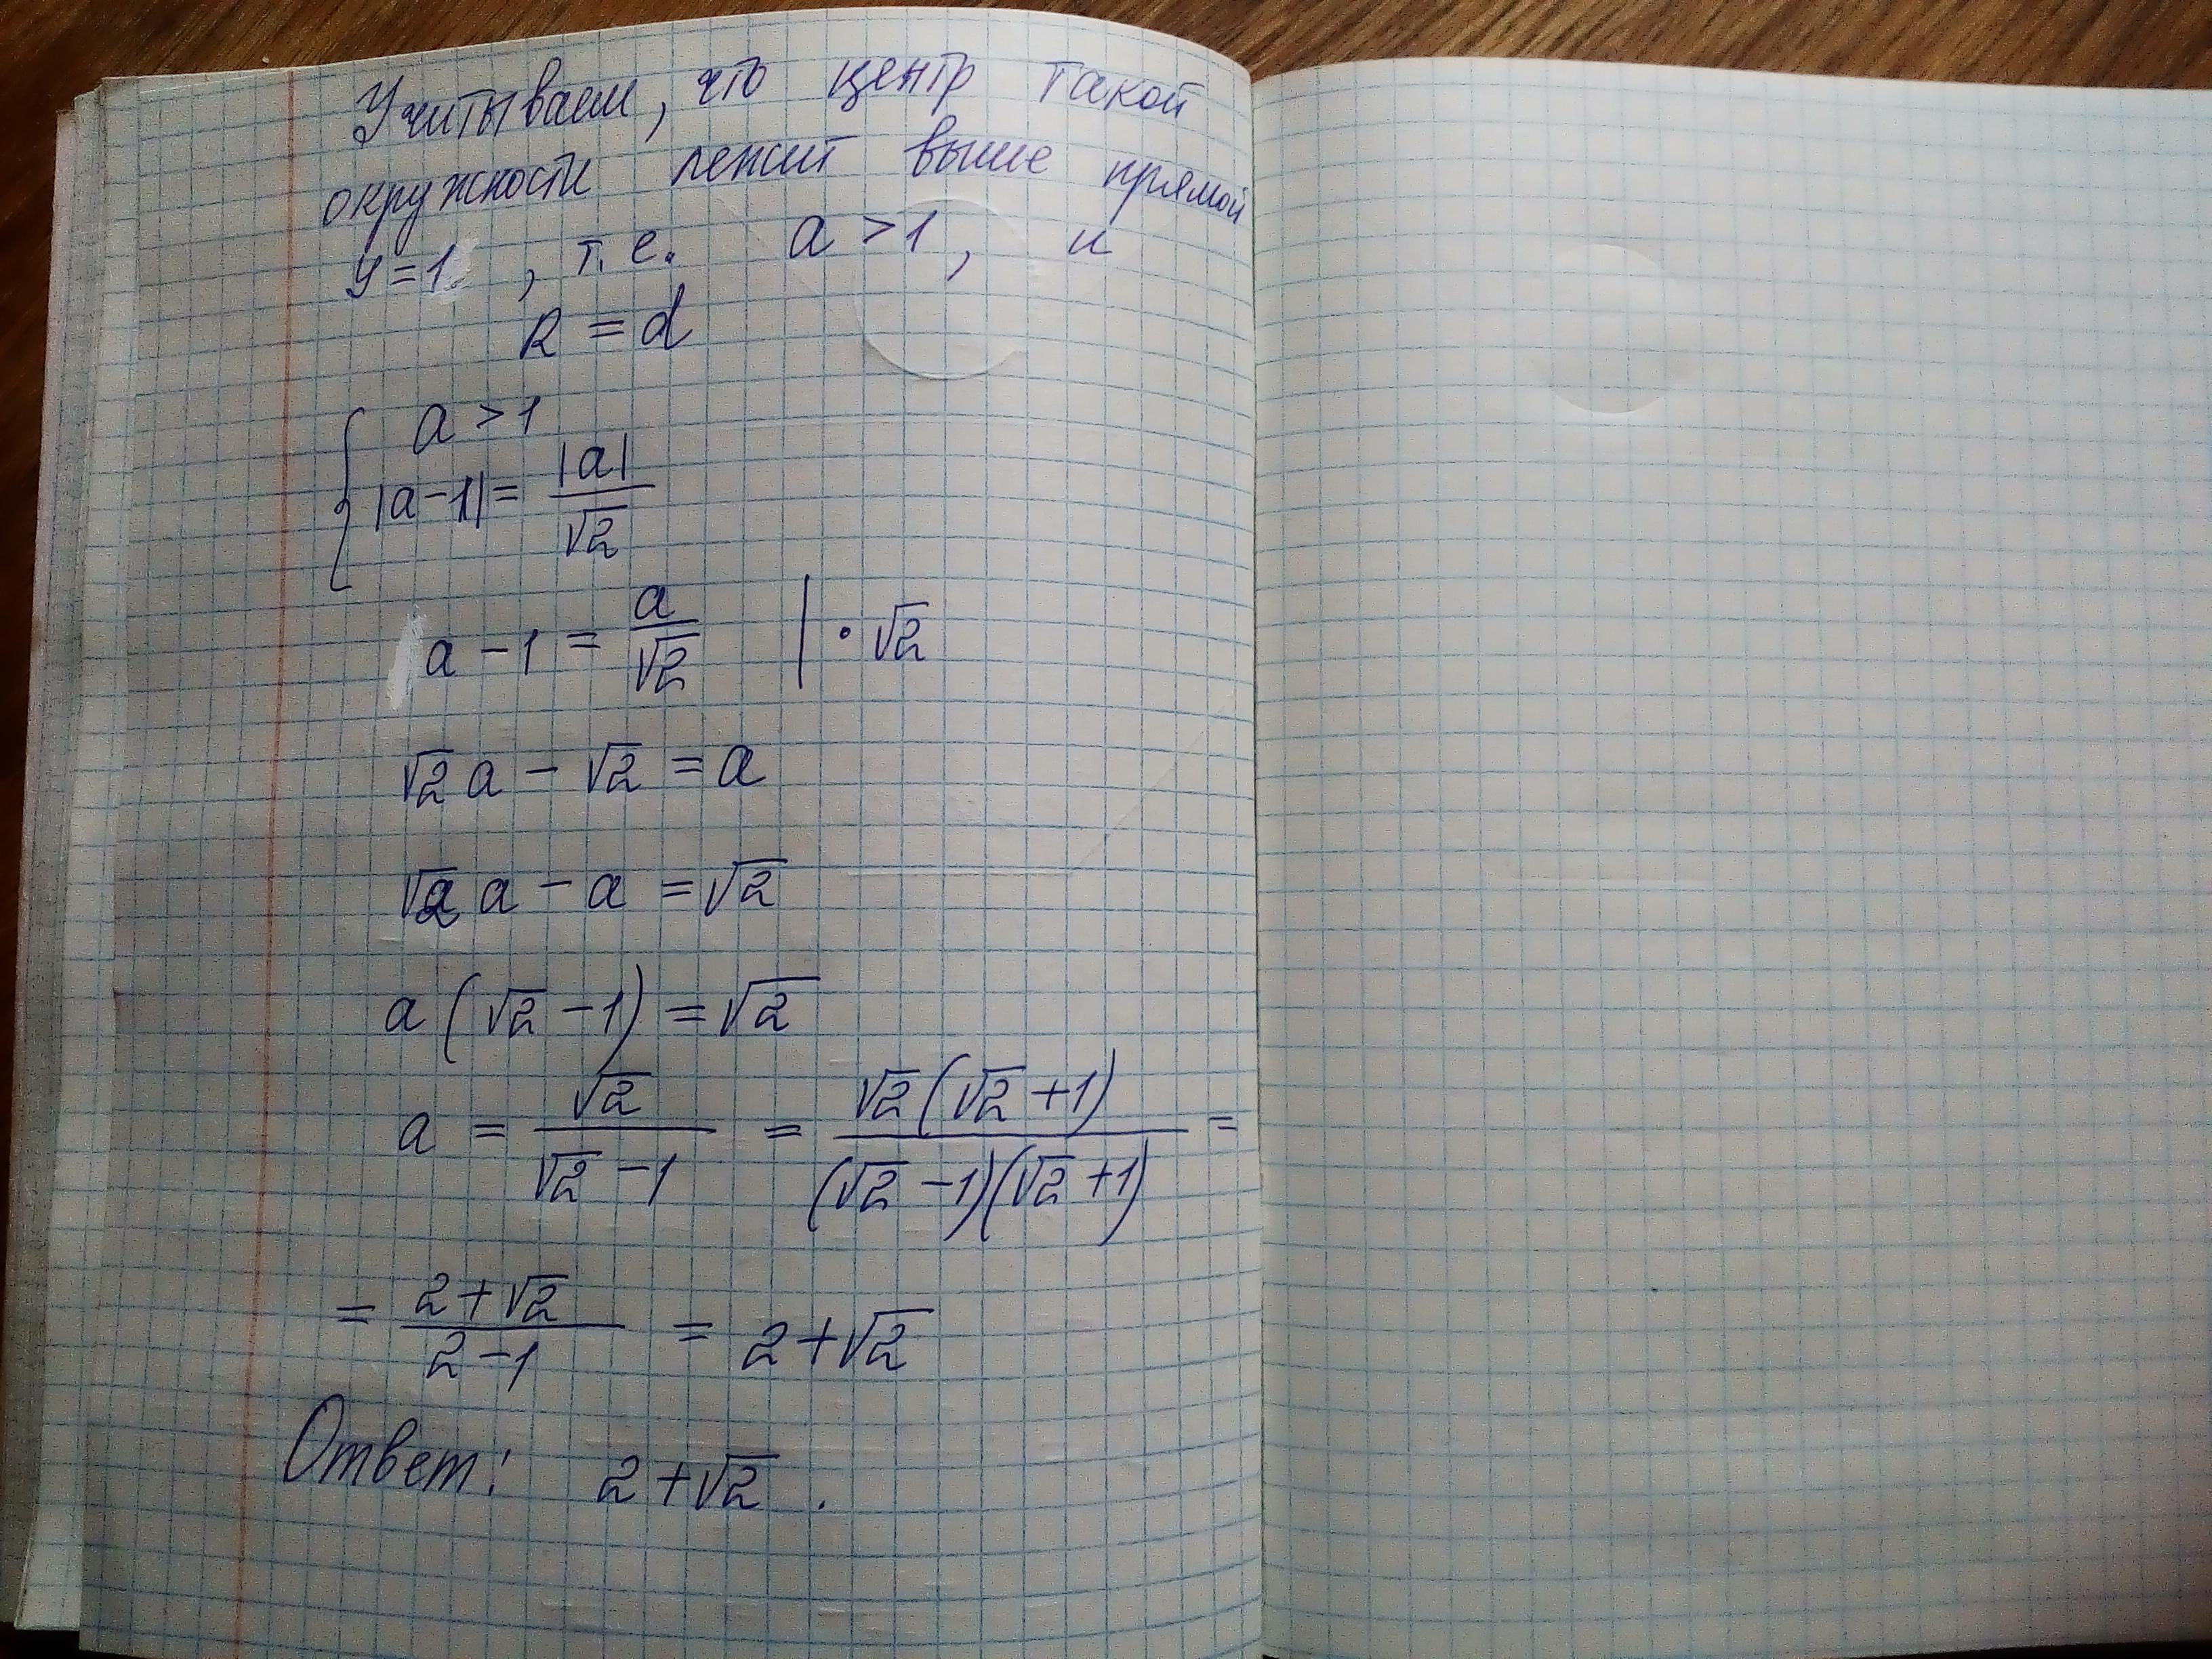 Учитываем, что центр такой
окружности лежит выше прямой
y=1 , т.е. a >1 , и
R = d
{ a >1
|a-1| = |a|/√2
a - 1 = a/√2 | · √2
√2 a - √2 = a
√2 a - a = √2
a (√2 - 1) = √2
a = √2/(√2 - 1) = √2(√2 +1)/((√2 -1)(√2 +1)) =
= (2+√2)/(2-1) = 2+√2
Ответ: 2+√2 .